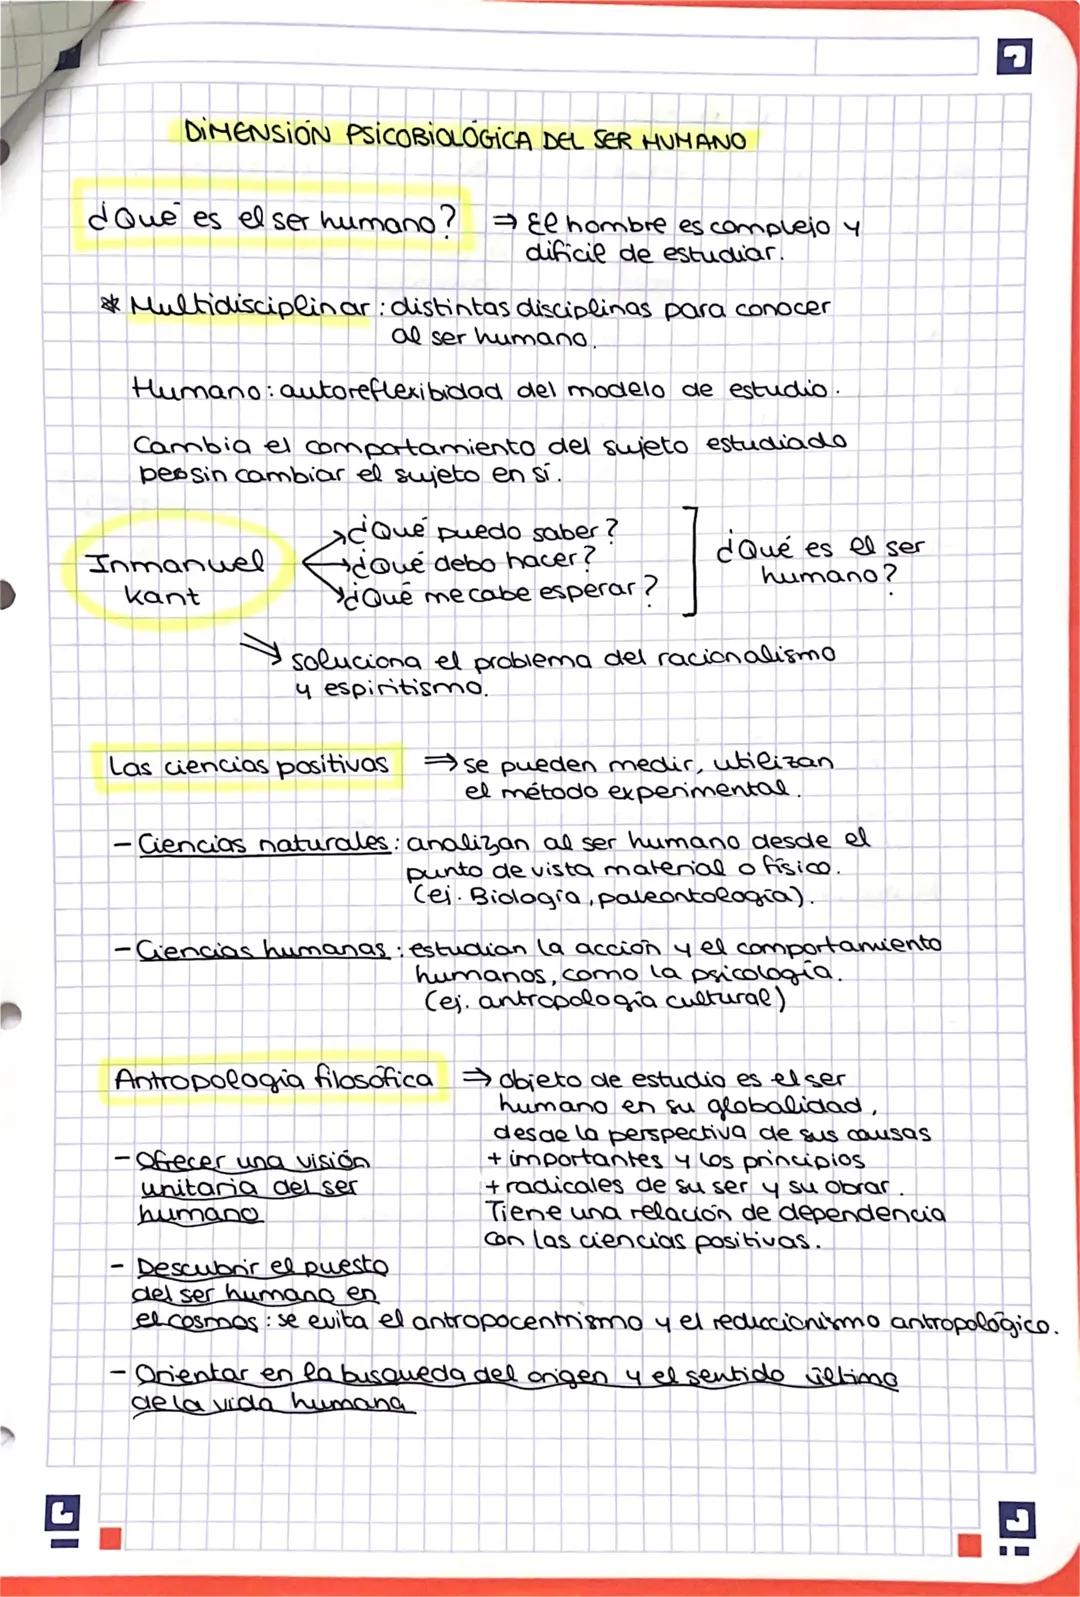 DIMENSIÓN PSICOBIOLÓGICA DEL SER HUMANO
¿Qué es el ser humano? ⇒ El hombre es complejo y
dificil de estudiar.
* Multidisciplinar: distintas disciplinas para conocer
al ser humano.
Humano: autoreflexibidad del modelo de estudio.
Cambia el comportamiento del sujeto estudiado
sin cambiar el sujeto en sí.
Inmanuel
Kant
→ ¿Qué puedo saber?
→ ¿Qué debo hacer?
→ ¿Qué me cabe esperar?
¿Qué es el ser
humano?
⇒ soluciona el problema del racionalismo
y espiritismo.
Las ciencias positivas ⇒ se pueden medir, utilizan
el método experimental.
- Ciencias naturales: analizan al ser humano desde el
punto de vista material o físico.
(ej. Biología, paleontología).
- Ciencias humanas: estudian la acción y el comportamiento
humanos, como la psicología.
(ej. antropología cultural)
Antropologia filosófica ⇒ objeto de estudio es el ser
humano en su globalidad,
desde la perspectiva de sus causas
+ importantes y los principios
+ radicales de su ser y su obrar.
Tiene una relación de dependencia
con las ciencias positivas.
- Ofrecer una visión
unitaria del ser
humano
- Descubrir el puesto
del ser humano en
el cosmos: se evita el antropocentrismo y el reduccionismo antropológico.
- Orientar en la busqueda del origen y el sentido último
de la vida humana